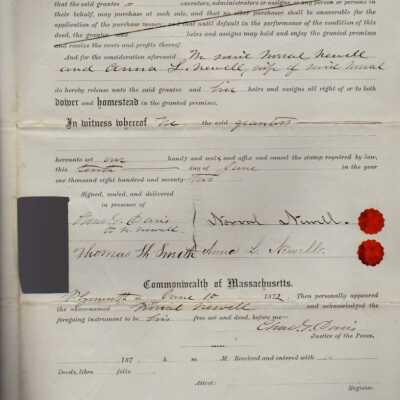 that the said grantee or executors, administrators or assigns or any person or persons
in their behalf, may purchase at such sale, and that no other purchaser shall be answerable for the
application of the purchase money and that until default in the performance of the condition of this
deed, the grantor heirs and assigns may hold and enjoy the granted premises
and receive the rents and profits thereof
And for the consideration aforesaid We said Norval Newell
and Anna L. Newell, wife of said Norval
do hereby release unto the said grantee and his heirs and assigns all right of or to both
dower and homestead in the granted premises.
In witness whereof We the said grantors
hereunto set our hands and seals, and affix and cancel the stamp required by law,
this tenth day of June in the year
one thousand eight hundred and seventy-two
Signed, sealed, and delivered
in presence of
Chas G. Davis Norval Newell.
to N. Newell
Thomas Smith Anna L. Newell.
Commonwealth of Massachusetts.
Plymouth ss June 10 1872 Then personally appeared
the above-named Norval Newell and acknowledged the
foregoing instrument to be his free act and deed, before me—
Chas. G. Davis
Justice of the Peace.
187 h m M Received and entered with
Deeds, libro folio
Attest:
Register.